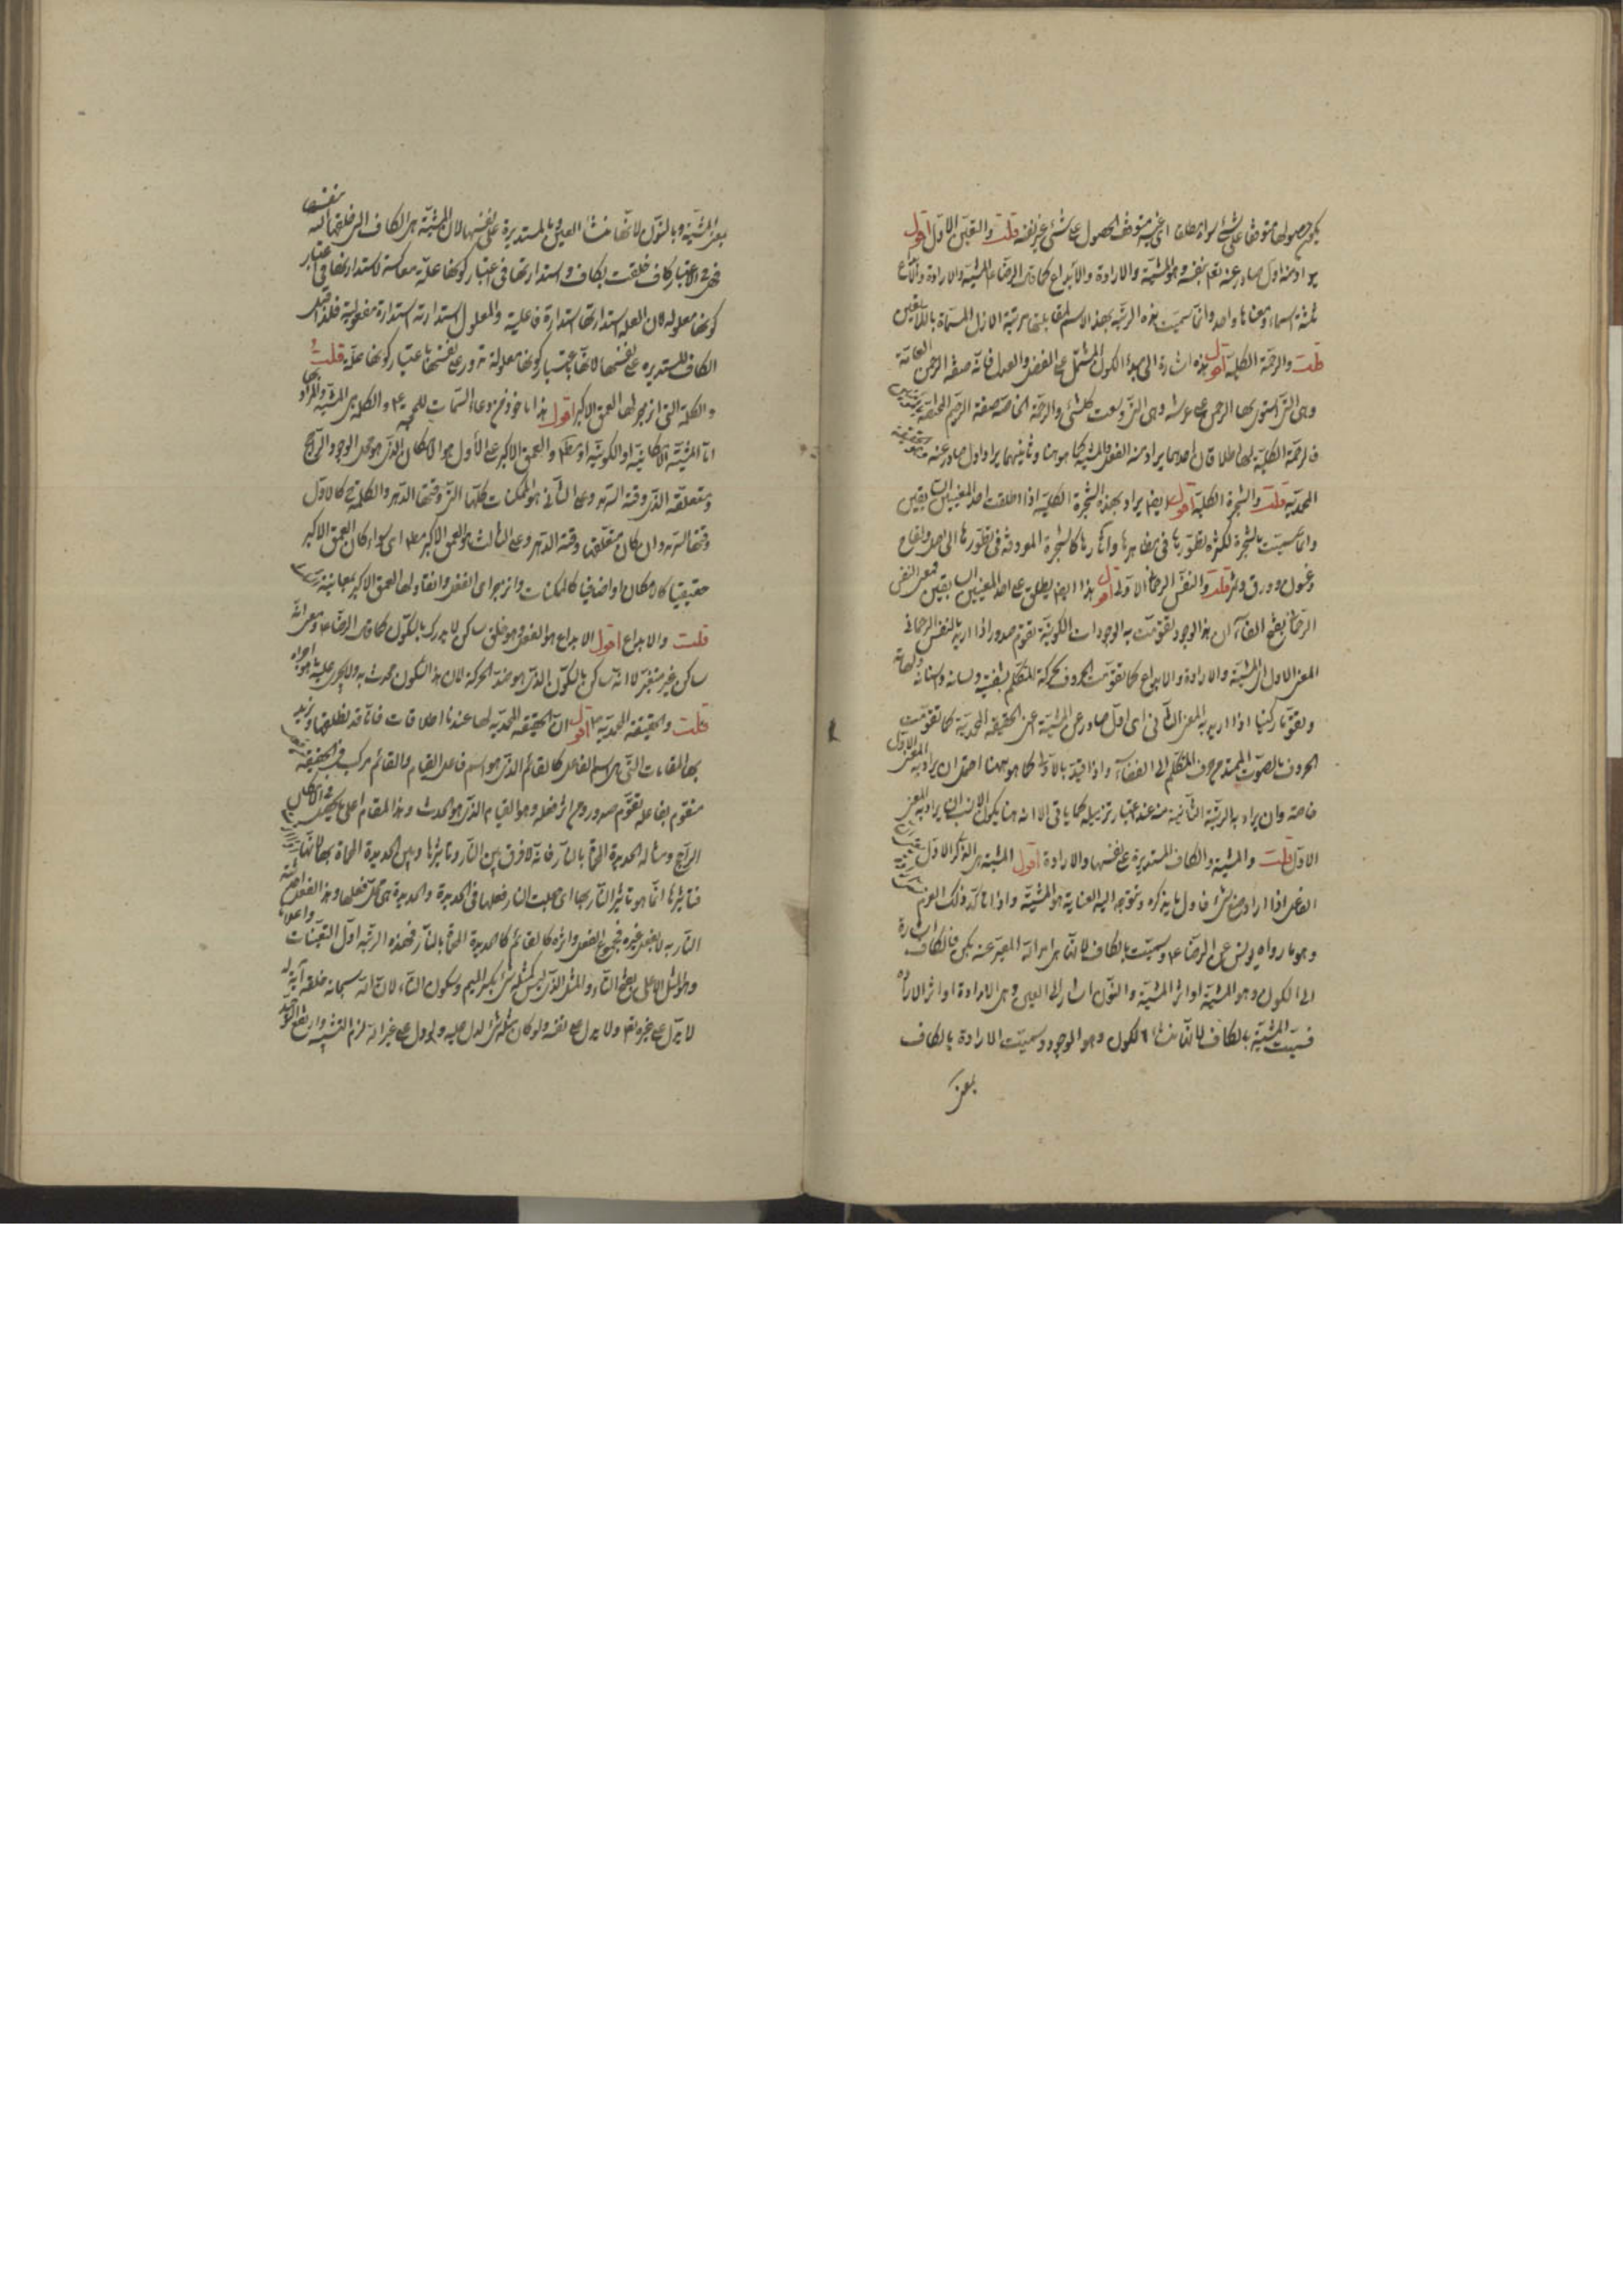 يكون حصولها متوقفا على شئ سواء مطلقا اى غير متوقف الحصول على شئ غير نفسه قلت والتعين الاول اقول
يراد منه اول صادر عنه بنفسه وهو المشية والارادة والابداع كما قال الرضا ع المشية والارادة والابداع
ثلثة اسماء ومعناها واحد وانما سميت هذه الرتبة بهذا الاسم لمقابلتها مرتبة الازل المسماة باللاتعين
قلت والرحمة الكلية اقول هذه اشارة الى مبدء الكون المشتمل على الفضل والعدل فانه صفة الرحمن العامة
وهى التى استوى بها الرحمن على عرشه وهى التى وسعت كلشئ والرحمة الخاصة صفة الرحيم المختصة
فالرحمة الكلية لها اطلاقان احدهما يراد منه الفعل والمشية كما هو هنا وثانيهما يراد اول صادر عنه
المحمدية قلت والشجرة الكلية اقول ايضا يراد بهذه الشجرة الكلية اذا اطلقت احد المعنيين السابقين
وانما سميت بالشجرة لكثرة تطوراتها فى مظاهرها وآثارها كالشجرة المعروفة فى تطورها الى اصل ولقاح
وغصون وورق وثمر قلت والنفس الرحمانى الاولى اقول هذا ايضا يطلق على احد المعنيين السابقين فمعنى النفس
الرحمانى بفتح الفاء ان هذا الوجود تقومت به الوجودات الكونية تقوم صدور اذا اريد بالنفس الرحمانى
المعنى الاول اى المشية والارادة والابداع كما تقومت الحروف بحركة المتكلم بنفسه ولسانه واسنانه ولهاته
وتقوما ركنيا اذا اريد به المعنى الثانى اى اول صادر عن المشية اعنى الحقيقة المحمدية كما تقومت
الحروف بالصوت الممتد من جوف المتكلم الى الفضاء واذا قيد بالاولى كما هو ههنا احتمل ان يراد به المعنى الاول
خاصة وان يراد به الرتبة الثانية منه عند اعتبار تنزيله كما ياتى الا انه هنا يكون الانسب ان يراد به المعنى
الاول قلت والمشية والكاف المستديرة على نفسها والارادة اقول المشية هى الذكر الاول
الفاعل اذا اراد صنع شئ فاول ما يذكره وتتوجه اليه العناية هو المشية واذا تأكد ذلك العزم
وهو ما رواه يونس عن الرضا ع وسميت بالكاف لانها هى امر الله المعبر عنه بكن فالكاف اشارة
الى الكون وهو المشية او اثر المشية والنون اشارة الى العين وهى الارادة او اثر الارادة
فسميت المشية بالكاف لانها منشأ الكون وهو الوجود وسميت الارادة بالكاف
بمعنى
بمعنى المشية وبالنون لانها منشأ العين والمستديرة على نفسها لان المشية هى الكاف التى خلقها الله بنفسها
فهى فى الاعتبار كاف خلقت بكاف واستدارتها فى اعتبار كونها علة معاكسة لاستدارتها فى اعتبار
كونها معلولة لان العلة استدارتها استدارة فاعلية والمعلول استدارته استدارة مفعولية فلذا قيل
الكاف المستديرة على نفسها لانها باعتبار كونها معلولة تدور على نفسها باعتبار كونها علة قلت
والكلمة التى انزجر لها العمق الاكبر اقول هذا ماخوذ من دعاء السمات للحجة ع والكلمة هى المشية والمراد بها
اما المشية الامكانية او الكونية او مطلقا والعمق الاكبر على الاول هو الامكان الذى هو محل الوجود الراجح
ومتعلقه الذى وقته السرمد وعلى الثانى هو الممكنات كلها التى وقتها الدهر والكلمة كالاول
وقتها السرمد وان كان متعلقها وقته الدهر وعلى الثالث هو العمق الاكبر مطلقا اى سواء كان العمق الاكبر
حقيقيا كالامكان او اضافيا كالممكنات وانزجر اى انفعل وانقاد لها العمق الاكبر
قلت والابداع اقول الابداع هو الفعل وهو خلق ساكن لا يدرك بالسكون كما قال الرضا ع ومعنى انه
ساكن غير متغير لا انه ساكن بالسكون الذى هو ضد الحركة لان هذا السكون حدث به ولا يجرى عليه ما هو اجراه
قلت والحقيقة المحمدية ص اقول ان الحقيقة المحمدية لها عندنا اطلاقات فانا قد نطلقها ونريد
بها المقامات التى هى اسم الفاعل كالقائم الذى هو اسم فاعل القيام والقائم مركب فى الحقيقة
متقوم بفاعله تقوم صدور ومن اثر فعله وهو القيام الذى هو الحدث وهذا المقام اعلى ما يمكن فى الامكان
الراجح ومثاله الحديدة المحماة بالنار فانه لا فرق بين النار وتاثيرها وبين الحديدة المحماة بها
فتاثيرها انما هو تاثير النار بها اى جعلت النار فعلها فى الحديدة والحديدة هى محل فعلها وهذا الفعل احدثته
النار به لا بفعل غيره فمجموع الفعل واثره كالقائم كالحديدة المحماة بالنار فهذه الرتبة اول التعينات واعلاها
وهو المثل الاعلى بفتح الثاء والمثل الذى ليس كمثله شئ بكسر الميم وسكون الثاء لان الله سبحانه خلقه آية له
لا يدل على غيره تعالى ولا يدل على نفسه ولو كان مثله شئ لدل عليه ولو دل على غير الله لزم التشبيه وارتفع التوحيد